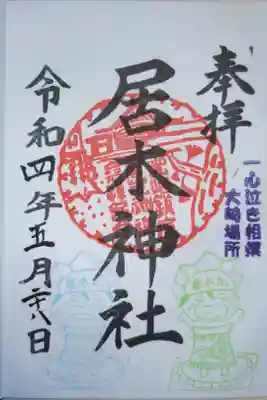 奉拝
一心泣き相撲
大崎場所
居木神社
令和四年五月二十八日